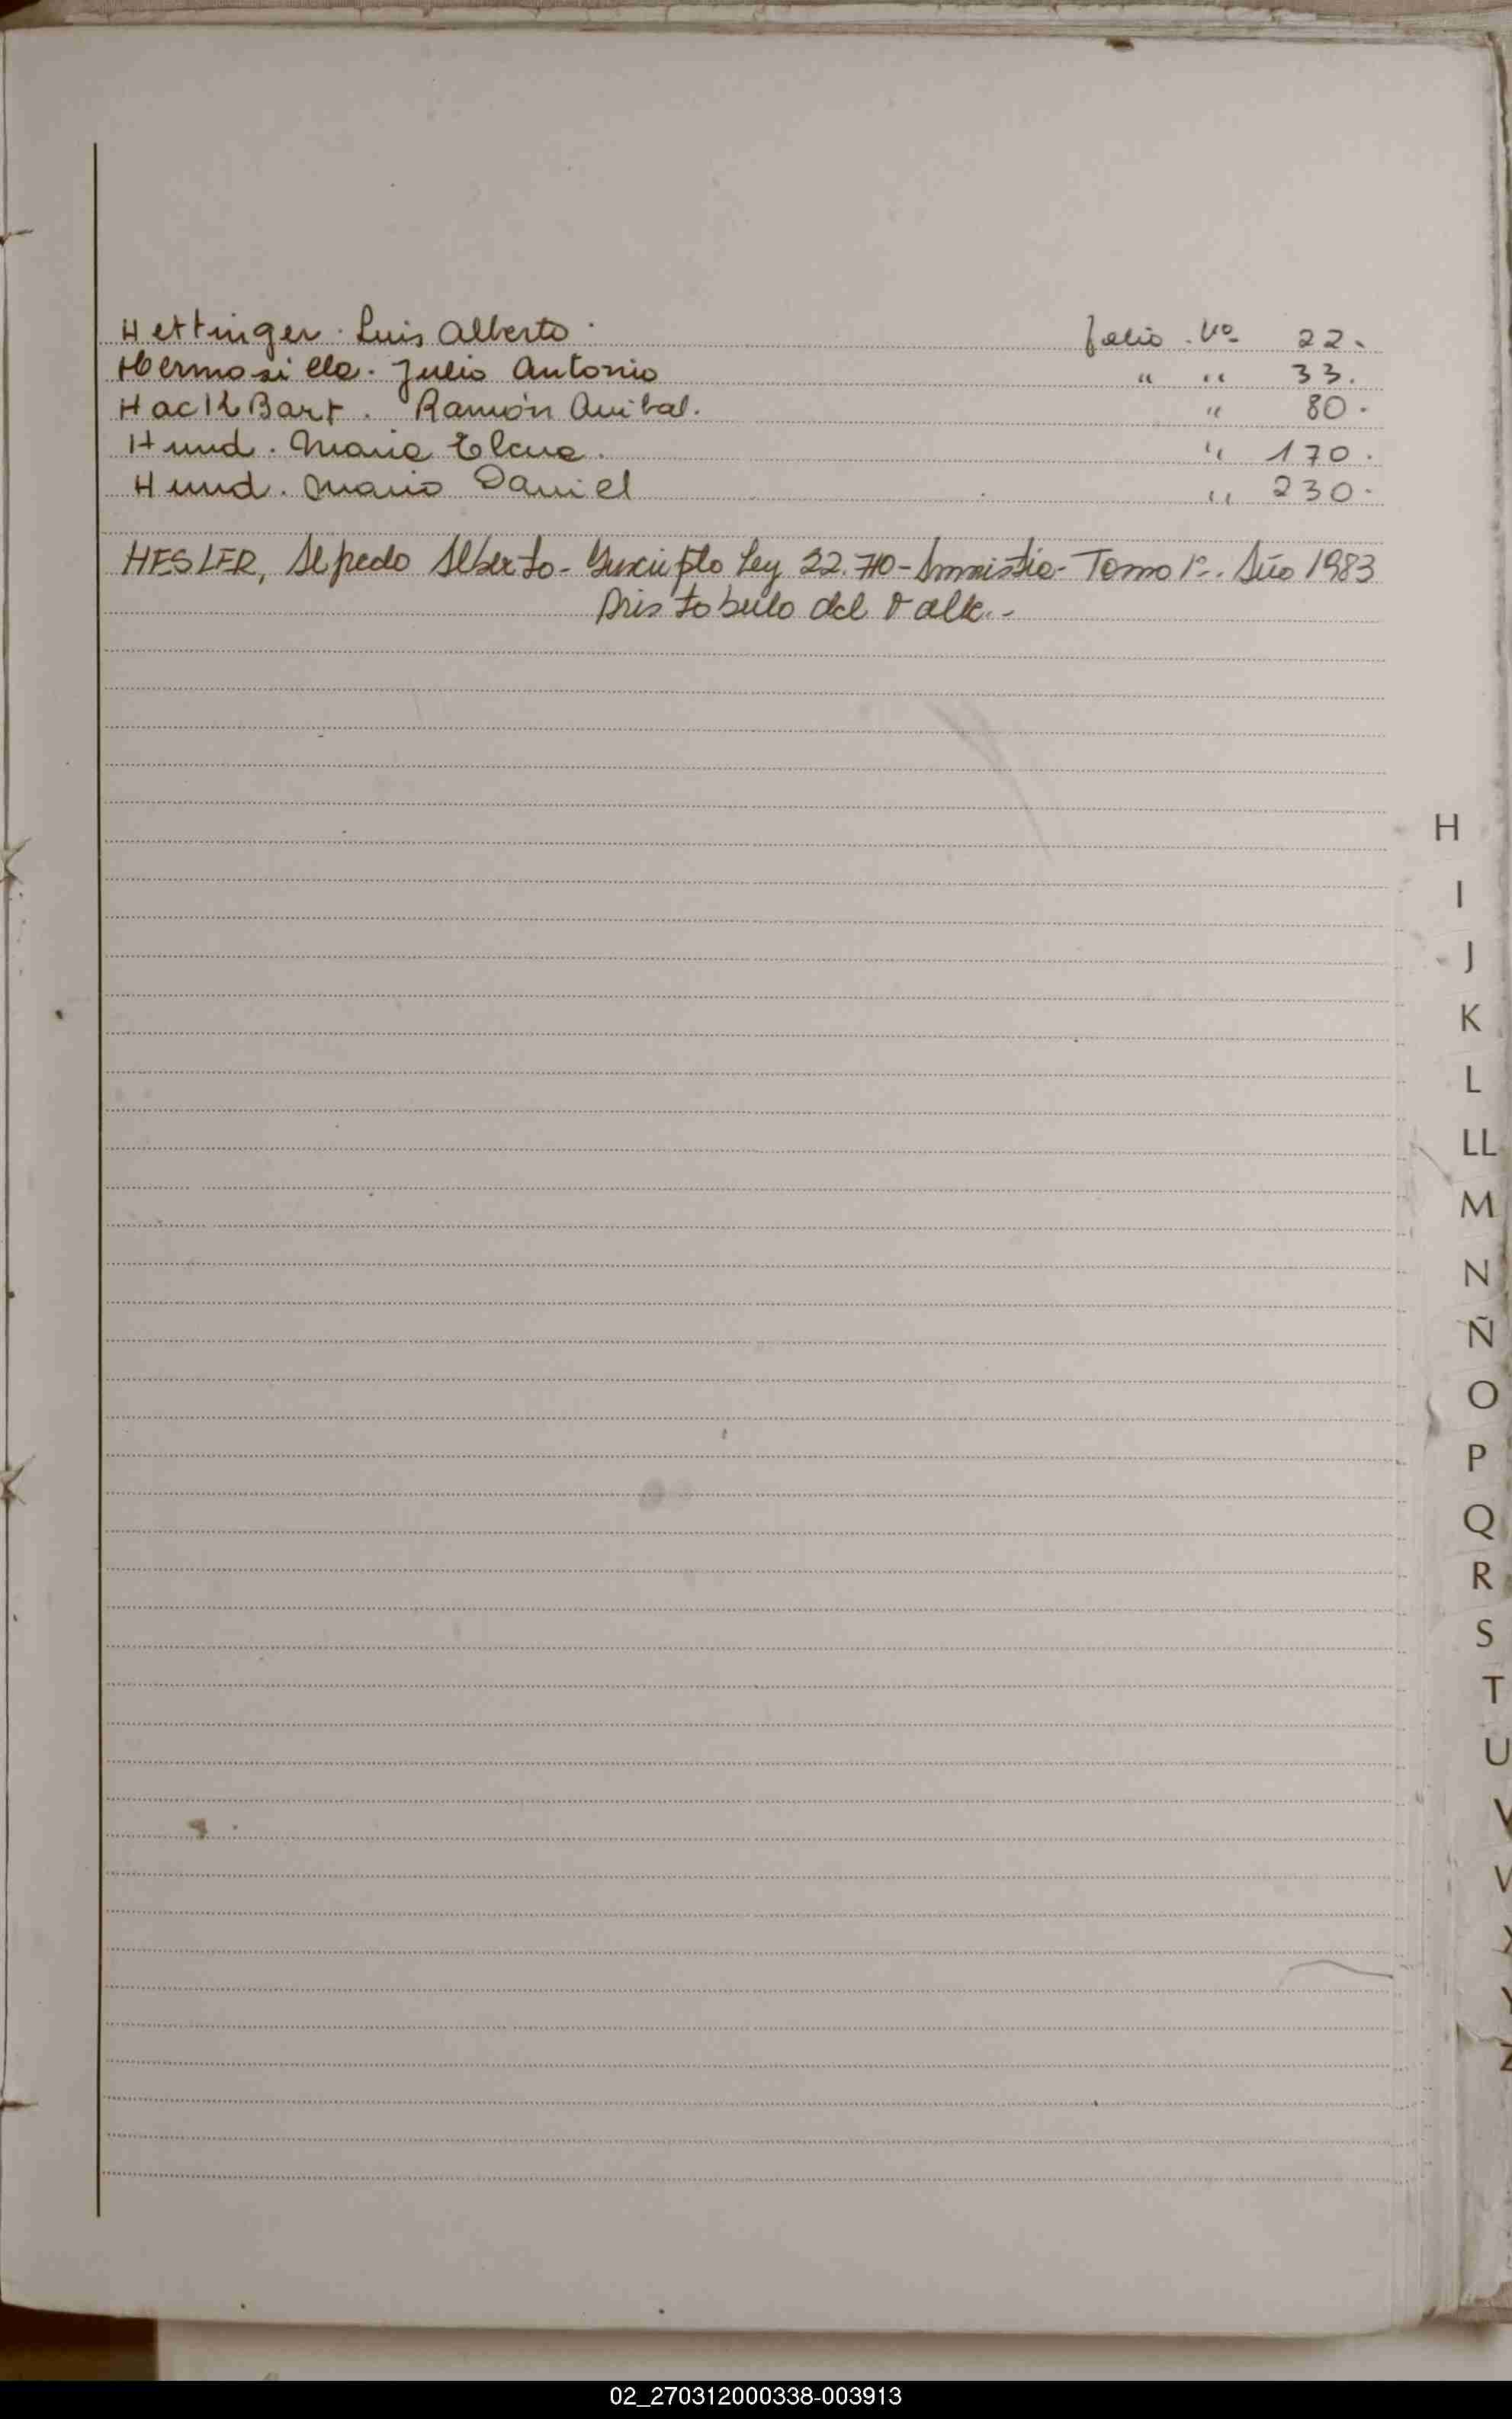 Hettinger. Luis Alberto. folio. Nº 22.
Hermosilla. Julio Antonio " " 33.
HackBart. Ramón Anibal. " 80.
Hund. Maria Elena. " 170.
Hund. Mario Daniel " 230.
HESLER, Alfredo Alberto- Inscripto Ley 22.710- Amnistia- Tomo 1º. Año 1983
Aristobulo del Valle.-
H
I
J
K
L
LL
M
N
Ñ
O
P
Q
R
S
T
U
V
X
Y
Z
02_270312000338-003913